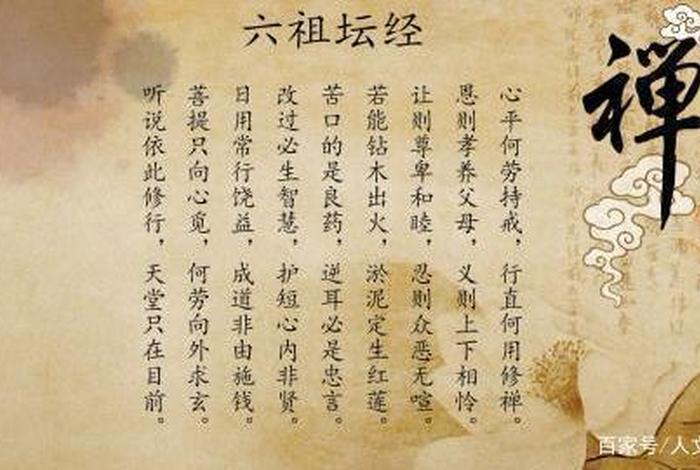 六祖坛经
心平何劳持戒，行直何用修禅。
恩则孝养父母，义则上下相怜。
让则尊卑和睦，忍则众恶无喧。
若能钻木出火，淤泥定生红莲。
苦口的是良药，逆耳必是忠言。
改过必生智慧，护短心内非贤。
日用常行饶益，成道非由施钱。
菩提只向心觅，何劳向外求玄。
听说依此修行，天堂只在目前。
禅
百家号/人文